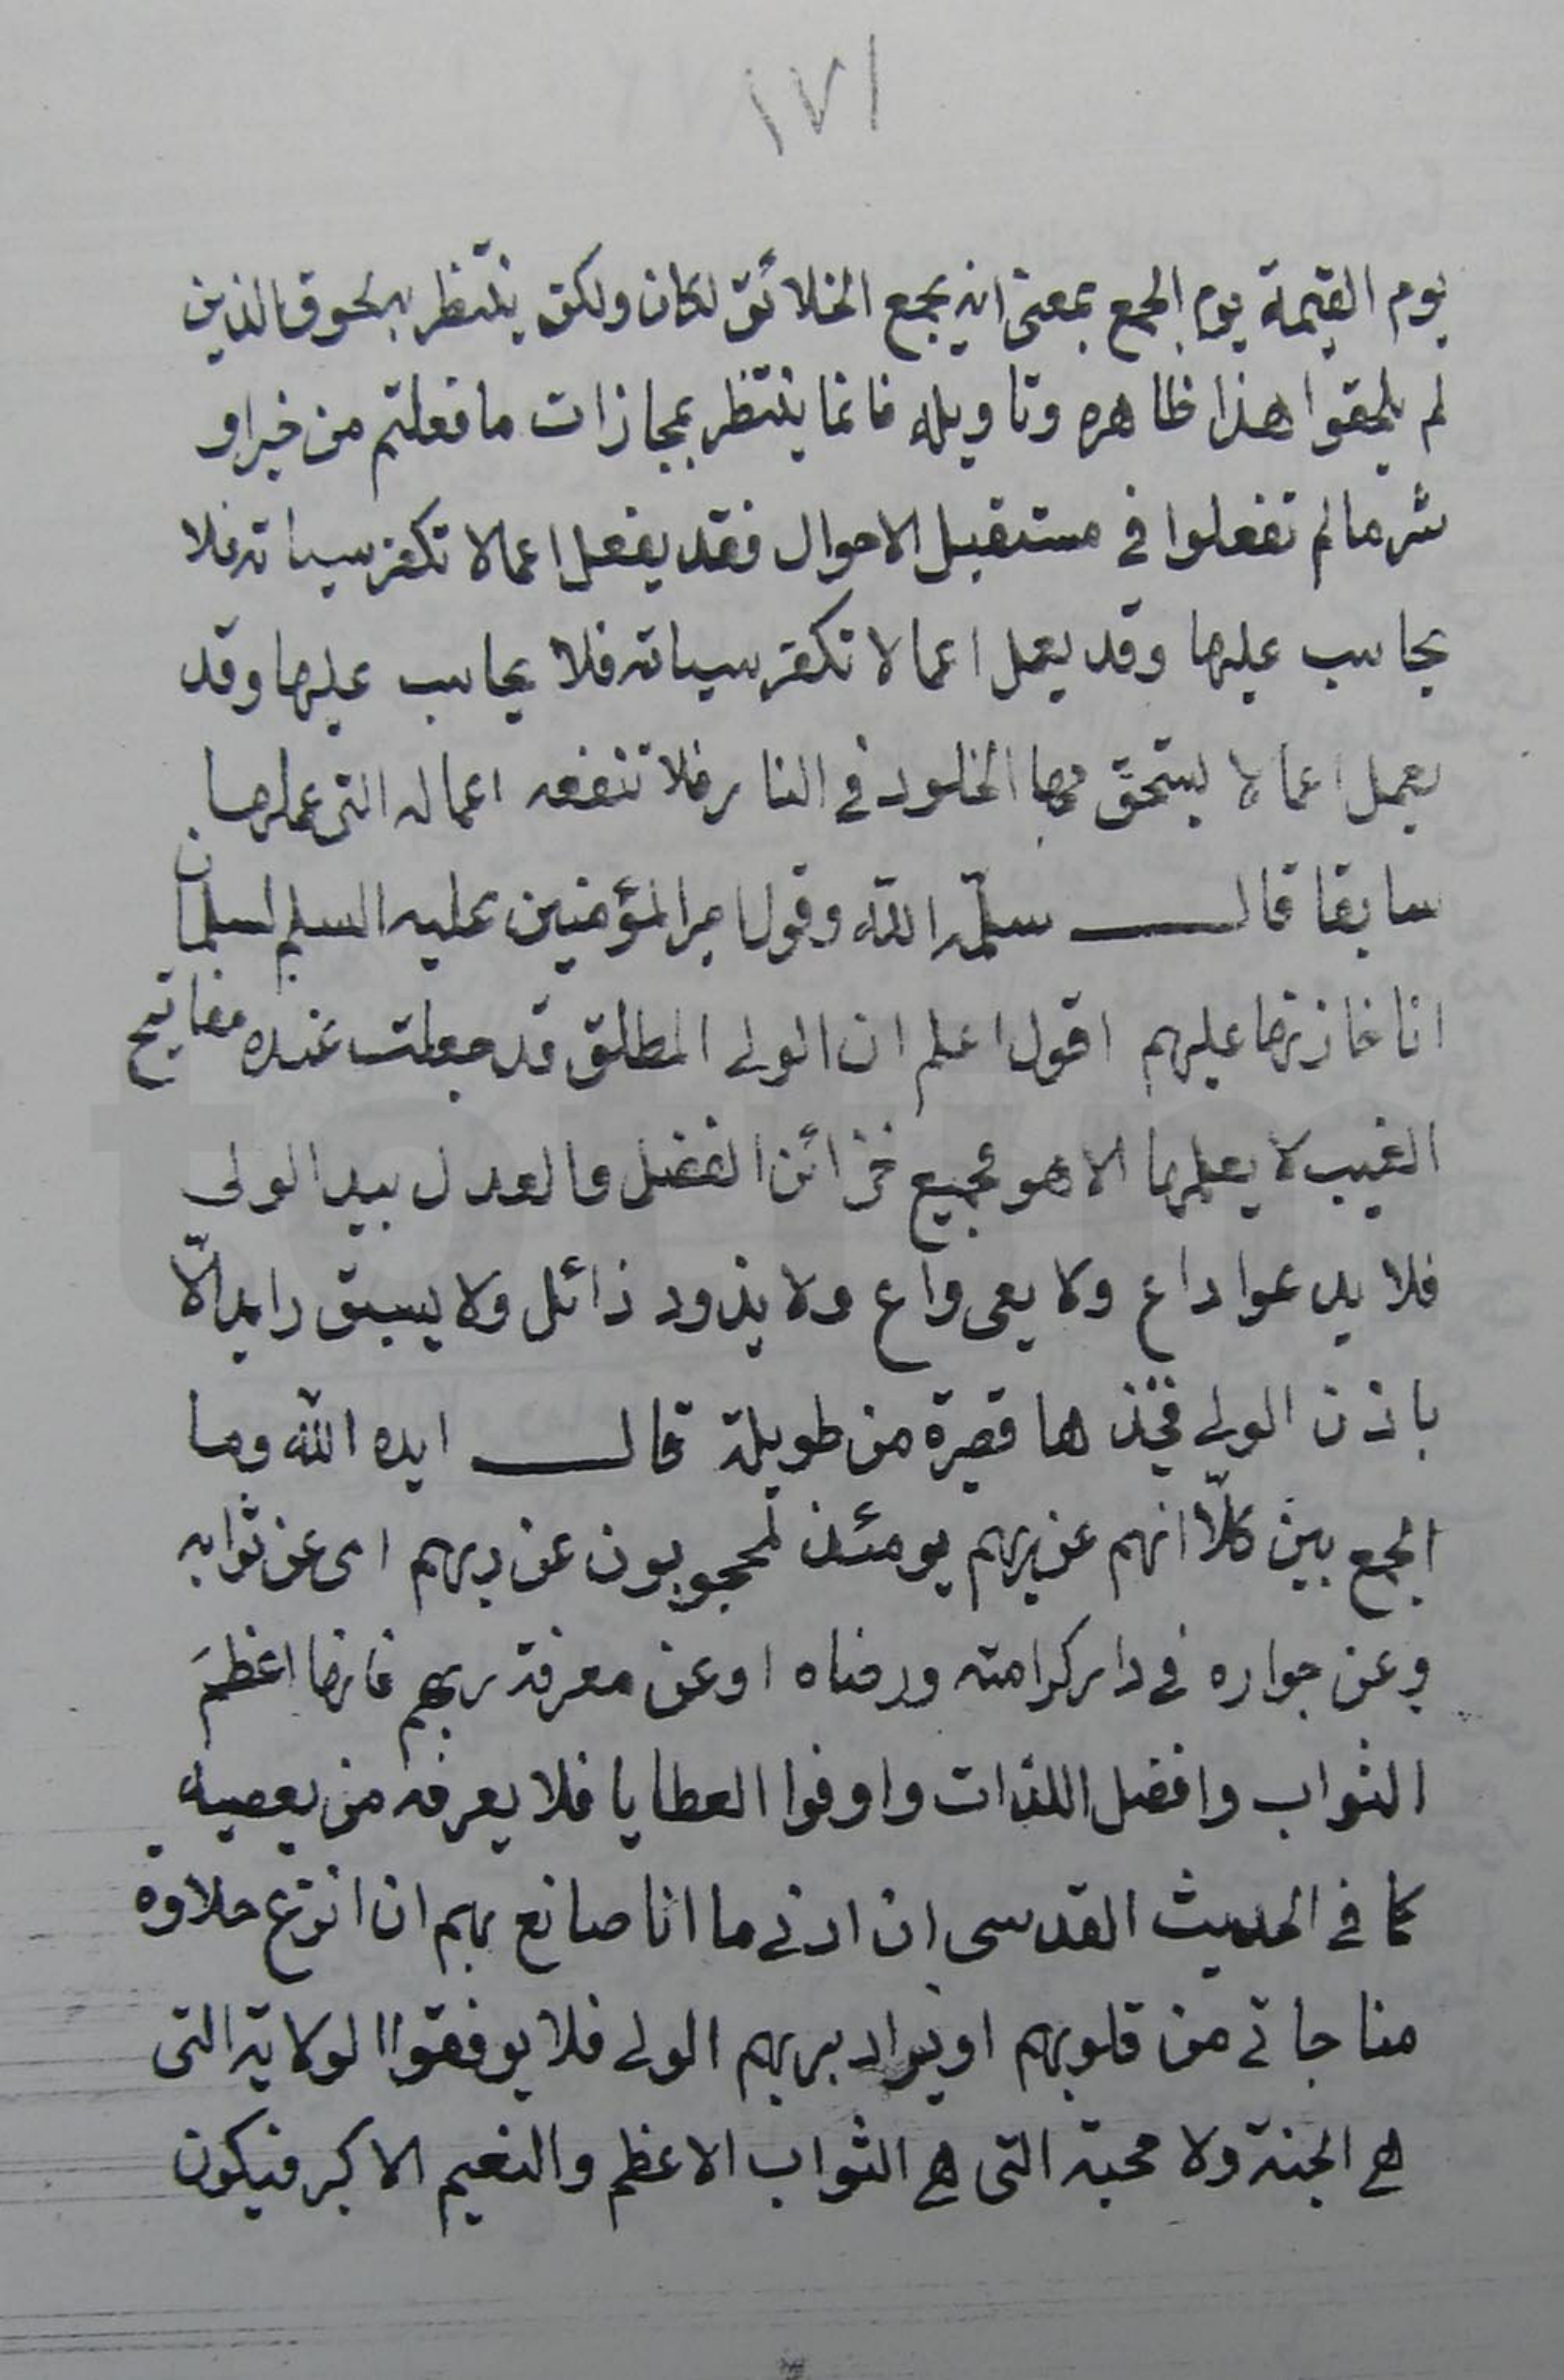 ١٧١
يوم القيمة يوم الجمع بمعنى انه يجمع الخلائق لكان ولكن ينتظر بلحوق الذين
لم يلحقوا هذا ظاهره وتاويله فانما ينتظر بمجازات ما فعلتم من خير او
شر ما لم تفعلوا في مستقبل الاحوال فقد يفعل اعمالا تكفر سياته فلا
يحاسب عليها وقد يعمل اعمالا تكفر سياته فلا يحاسب عليها وقد
يعمل اعمالا يستحق بها الخلود في النار فلا تنفعه اعماله التي عملها
سابقا قال سلمه الله وقول امير المؤمنين عليه السلم لسلمان
انا خازنها عليهم اقول اعلم ان الولى المطلق قد جعلت عنده مفاتيح
الغيب لا يعلمها الا هو فجميع خزائن الفضل والعدل بيد الولى
فلا يدعوا داع ولا يعى واع ولا يذود ذائل ولا يسبق رايد الّا
باذن الولى فخذها قصيرة من طويلة قال ايده الله وما
الجمع بين كلّا انهم عن ربهم يومئذ لمحجوبون عن ربهم اى عن ثوابه
وعن جواره في دار كرامته ورضاه او عن معرفة ربهم فانها اعظمَ
الثواب وافضل اللذات واوفوا العطايا فلا يعرفه من يعصيه
كما في الحديث القدسى ان ادنى ما انا صانع بهم ان انزع حلاوة
مناجاتى من قلوبهم او يراد بربهم الولى فلا يوفقوا الولاية التى
هي الجنة ولا محبة التى هي الثواب الاعظم والنعيم الاكبر فيكون